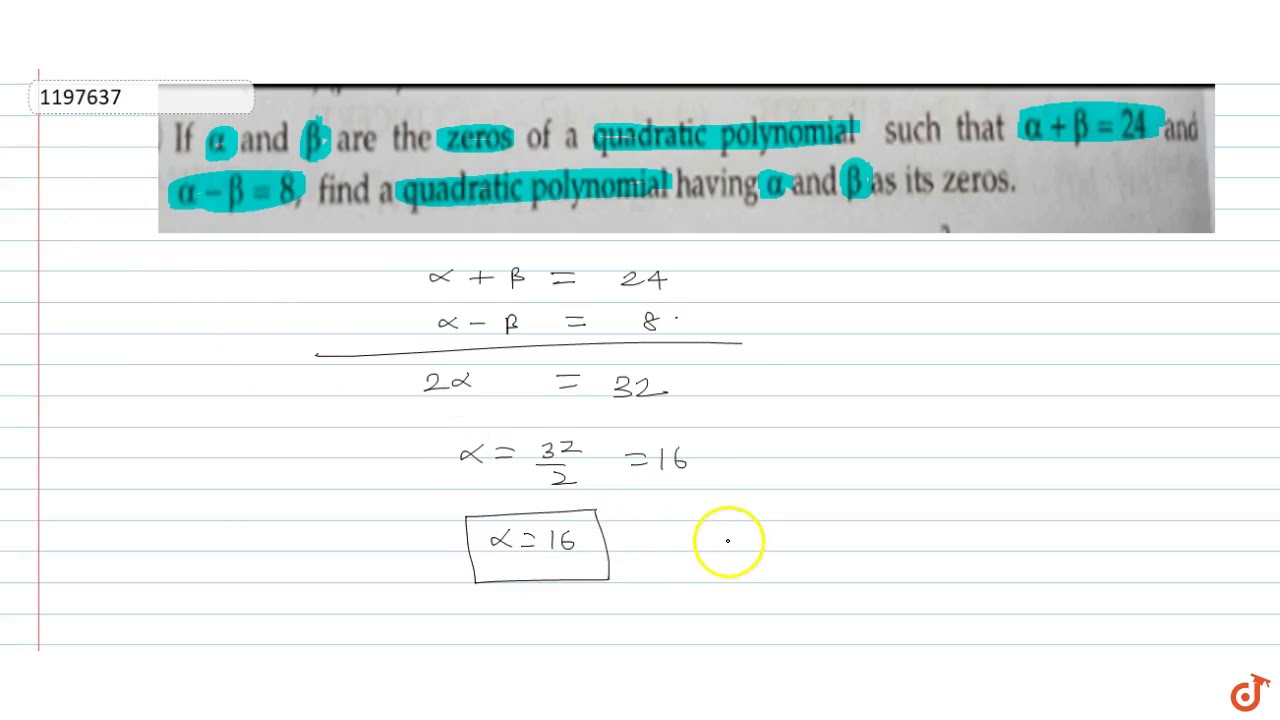 1197637
If α and β are the zeros of a quadratic polynomial such that α + β = 24 and
α – β = 8, find a quadratic polynomial having α and β as its zeros.
α + β = 24
α – β = 8
2α = 32
α = 32/2 = 16
α = 16